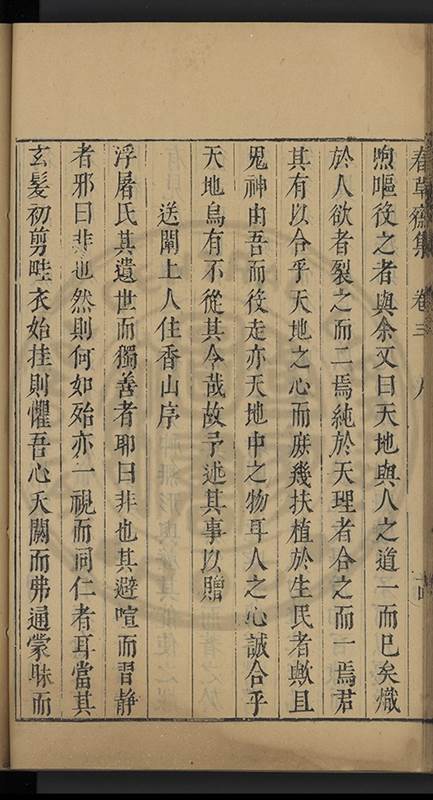 春草齋集 卷三 八
煦嘔役之者與余又曰天地與人之道一而已矣熾
於人欲者裂之而二焉純於天理者合之而一焉君
其有以合乎天地之心而庶幾扶植於生民者歟且
鬼神由吾而役走亦天地中之物耳人之心誠合乎
天地烏有不從其令哉故予述其事以贈
送闡上人住香山序
浮屠氏其遺世而獨善者耶曰非也其避喧而習静
者邪曰非也然則何如殆亦一視而同仁者耳當其
玄髮初剪畦衣始挂則懼吾心夭閼而弗通蒙昧而